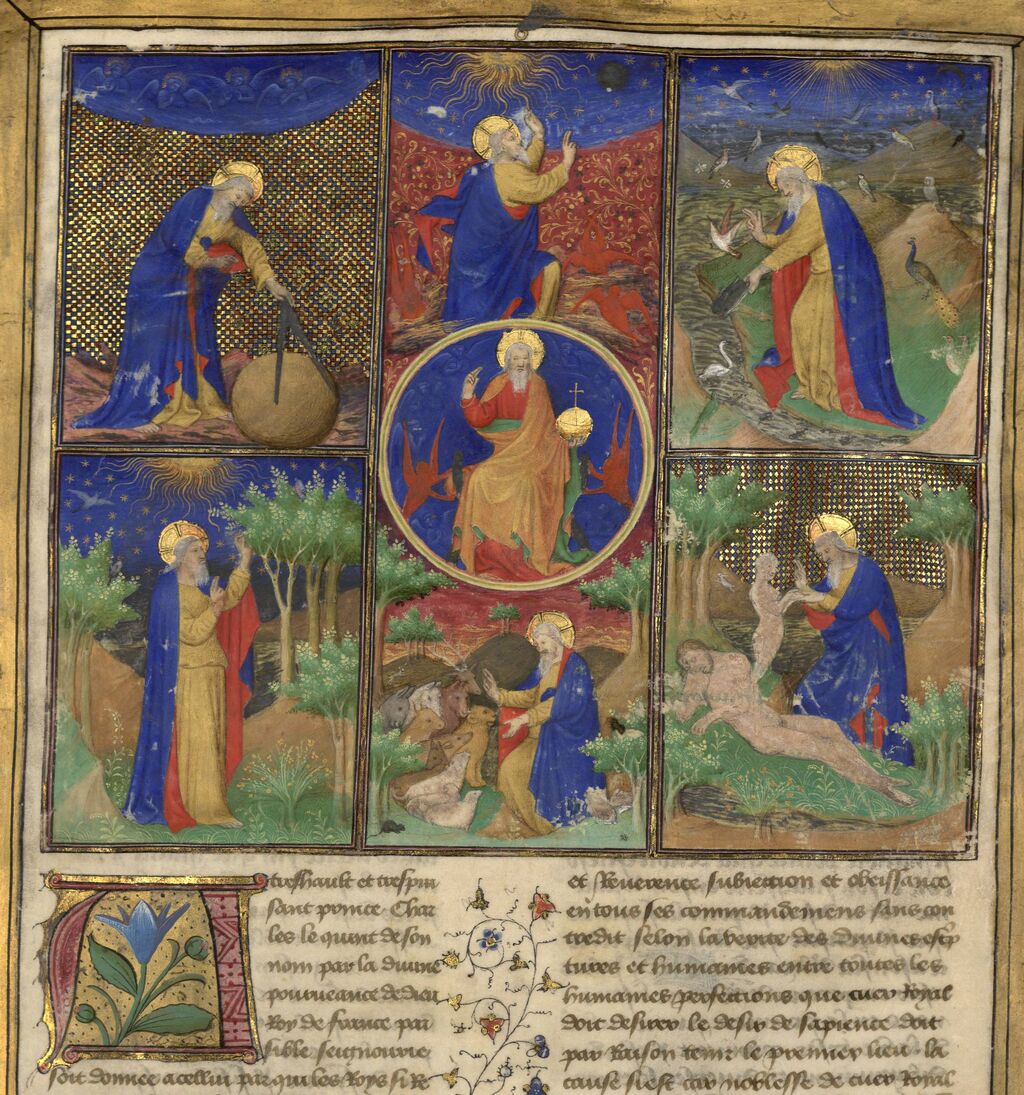 A treshault et tres puis
sant prince Char
les le quint de son
nom par la divine
pourveance de dieu
Roy de france par
sible seignourie
soit donnee a cellui par qui les Roys si Re
et Reverence subiection et obeissance
en tous ses commandemens sans con
tredit selon la verite des divines escrp
tures et humaines entre toutes les
humaines perfections que cuer Royal
doit desirer le desir de sapience doit
par Raison tenir le premier lieu la
cause si est car noblesse de cuer Royal